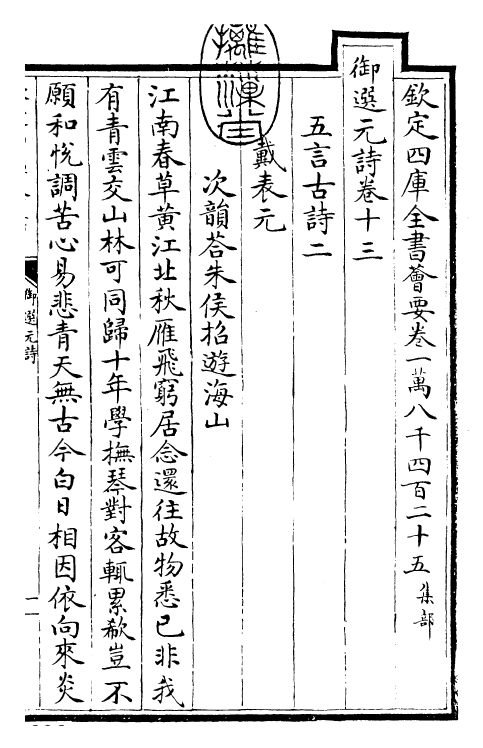 欽定四庫全書薈要卷一萬八千四百二十五 集部
御選元詩卷十三
五言古詩二
戴表元
次韻荅朱侯招遊海山
江南春草黃江北秋雁飛窮居念還往故物悉已非我
有青雲交山林可同歸十年學撫琴對客輒累欷豈不
願和悅調苦心易悲青天無古今白日相因依向來炎
御選元詩
一